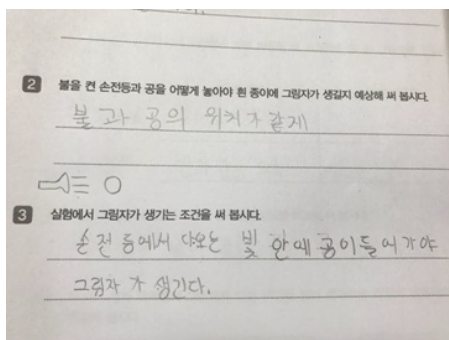 2 불을 켠 손전등과 공을 어떻게 놓아야 흰 종이에 그림자가 생길지 예상해 써 봅시다.
불과 공의 위치가 같게
3 실험에서 그림자가 생기는 조건을 써 봅시다.
손전등에서 나오는 빛 안에 공이 들어가야
그림자가 생긴다.